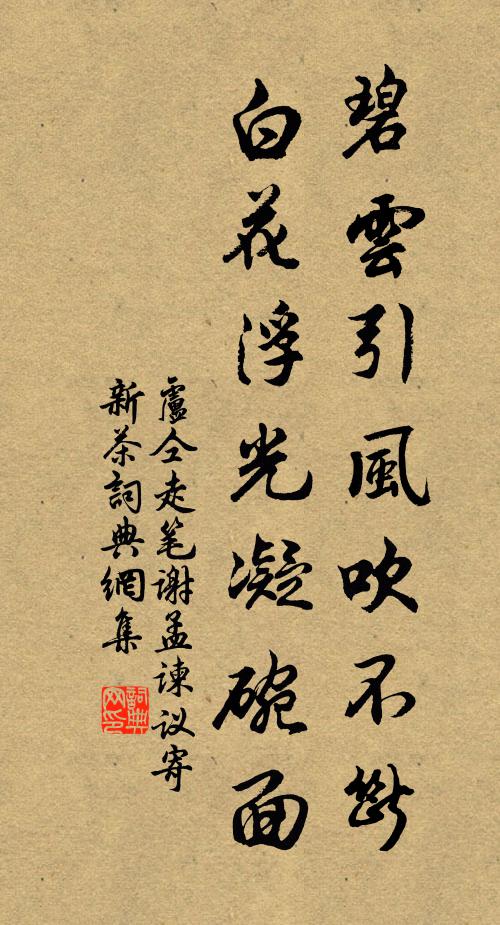 碧雲引風吹不斷
白花浮光凝碗面
盧仝走笔謝孟諫议寄
新茶詞典網集
詞典
网印